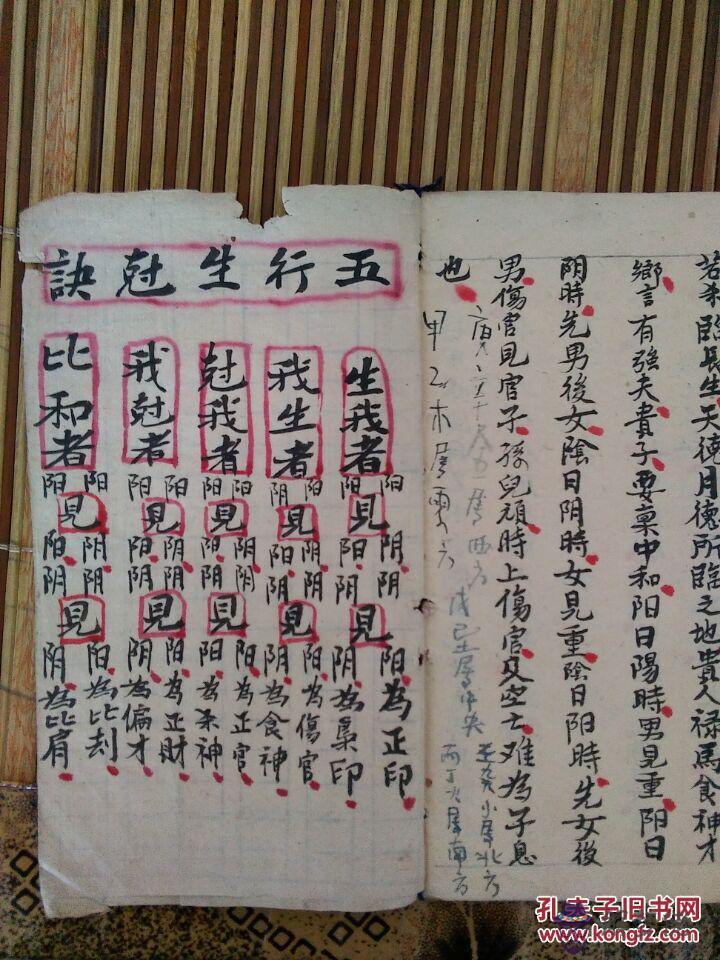 臨長生天德月德所臨之地貴人禄馬食神才
鄉言有強夫貴子要稟中和阳日陽時男見重阳日
阴時先男後女陰日阴時女見重陰日阳時先女後
男傷官見官子孫兒頑時上傷官及空亡难為子息
也
壬癸水属北方
戊己土属中央
丙丁火属南方
属西方
甲乙木属東方
五行生尅訣
生我者
阳見阴阴見阳為正印
阳見阳阴見阴為枭印
我生者
阳見阴阴見阳為傷官
阴見阳阴見阴為食神
尅我者
阳見阴阴見阳為正官
阳見阳阴見阴為杀神
我尅者
阳見阴阴見阳為正財
阳見阳阴見阴為偏才
比和者
阳見阴阴見阳為比刦
阳見阳阴見阴為比肩
孔夫子旧书网
www.kongfz.com